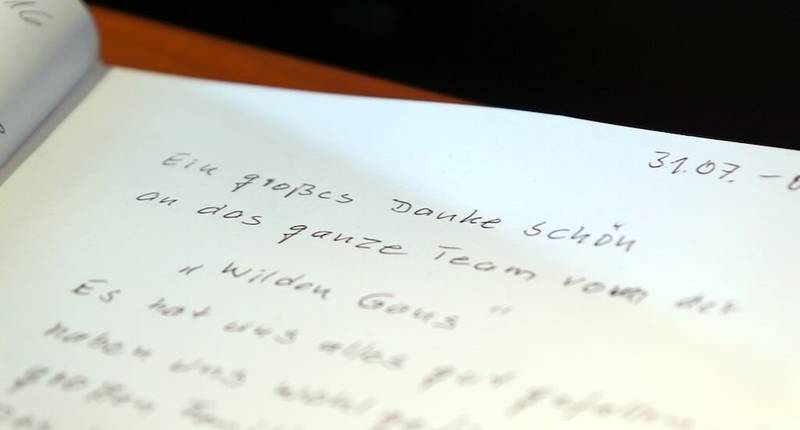 31.07. –
Ein großes Danke schön
an das ganze Team vom der
"Wilden Gans"
Es hat uns alles gut gefallen
haben uns wohl
großen